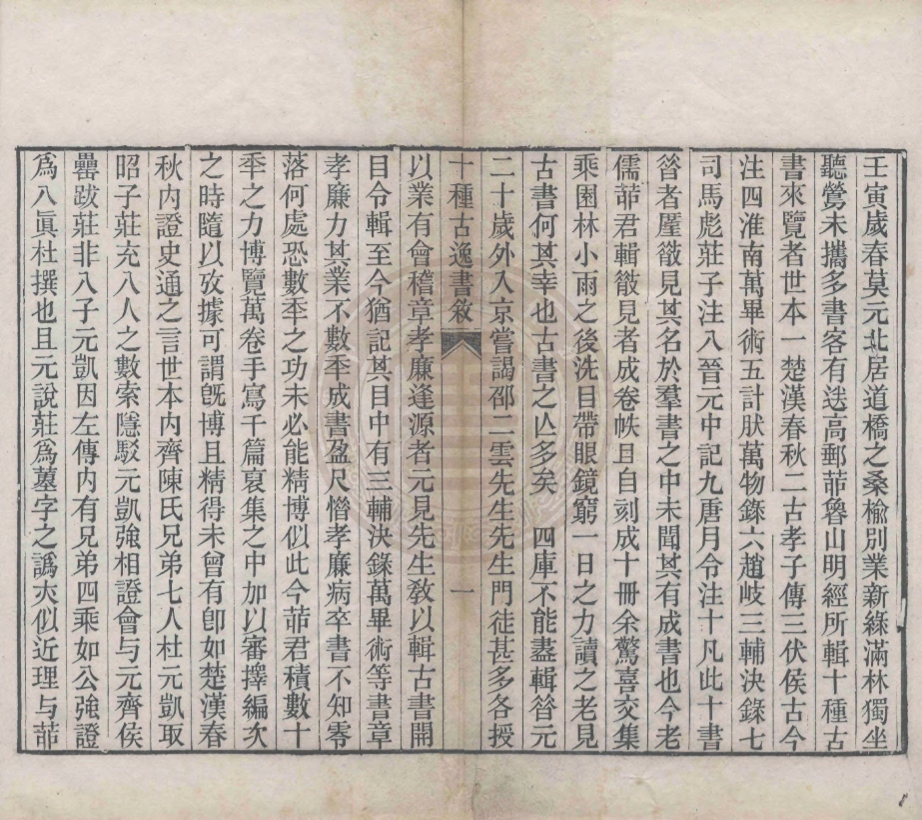 壬寅歲春莫元北居道橋之桑榆別業新綠滿林獨坐
聽鶯未攜多書客有送高郵茆魯山明經所輯十種古
書來覽者世本一楚漢春秋二古孝子傳三伏侯古今
注四淮南萬畢術五計肰萬物錄六趙岐三輔決錄七
司馬彪莊子注八晉元中記九唐月令注十凡此十書
昝者厪散見其名於羣書之中未聞其有成書也今老
儒茆君輯散見者成卷帙且自刻成十冊余驚喜交集
乘園林小雨之後洗目帶眼鏡窮一日之力讀之老見
古書何其幸也古書之亾多矣　四庫不能盡輯昝元
二十歲外入京嘗謁邵二雲先生先生門徒甚多各授
十種古逸書敘 一
以業有會稽章孝廉逢源者元見先生敎以輯古書開
目令輯至今猶記其目中有三輔決錄萬畢術等書章
孝廉力其業不數秊成書盈尺惜孝廉病卒書不知零
落何處恐數秊之功未必能精博似此今茆君積數十
秊之力博覽萬卷手寫千篇裒集之中加以審擇編次
之時隨以攷據可謂旣博且精得未曾有卽如楚漢春
秋內證史通之言世本內齊陳氏兄弟七人杜元凱取
昭子莊充八人之數索隱駁元凱強相證會与元齊侯
罍跋莊非八子元凱因左傳內有兄弟四乘如公強證
爲八眞杜撰也且元說莊爲䔳字之譌夾似近理与茆